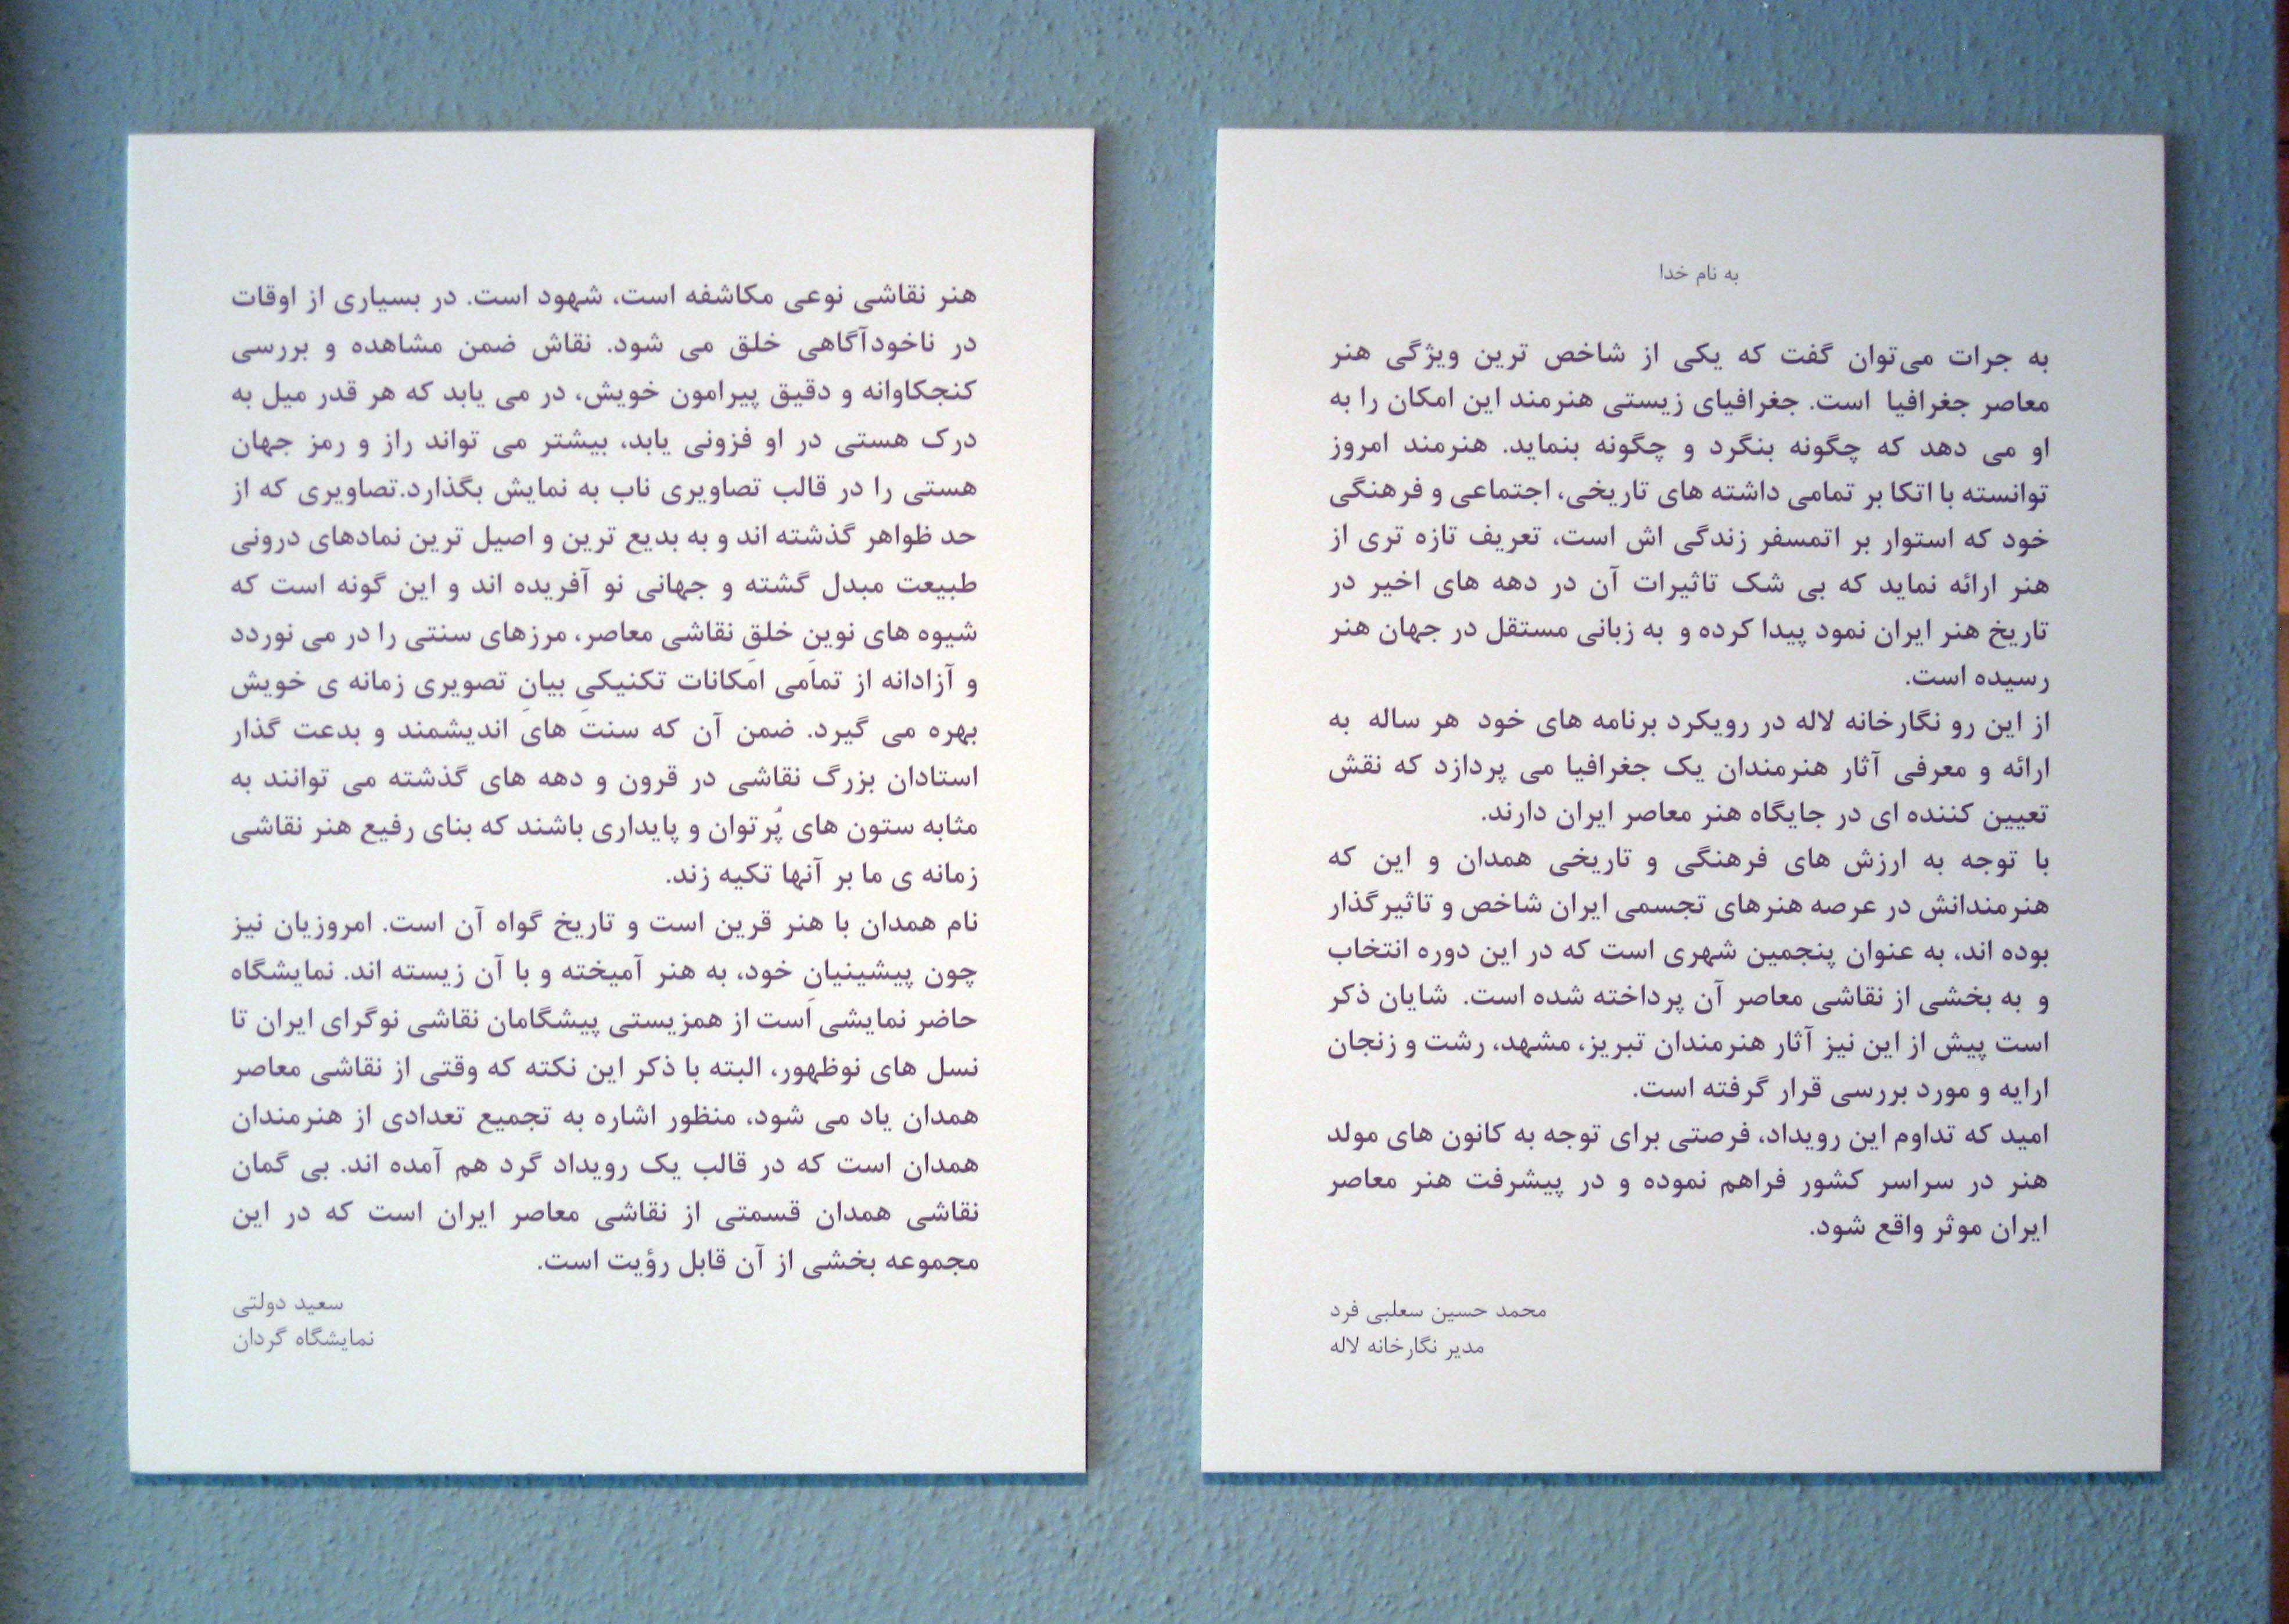 به نام خدا
به جرات می‌توان گفت که یکی از شاخص ترین ویژگی هنر
معاصر جغرافیا است. جغرافیای زیستی هنرمند این امکان را به
او می دهد که چگونه بنگرد و چگونه بنماید. هنرمند امروز
توانسته با اتکا بر تمامی داشته های تاریخی، اجتماعی و فرهنگی
خود که استوار بر اتمسفر زندگی اش است، تعریف تازه تری از
هنر ارائه نماید که بی شک تاثیرات آن در دهه های اخیر در
تاریخ هنر ایران نمود پیدا کرده و به زبانی مستقل در جهان هنر
رسیده است.
از این رو نگارخانه لاله در رویکرد برنامه های خود هر ساله به
ارائه و معرفی آثار هنرمندان یک جغرافیا می پردازد که نقش
تعیین کننده ای در جایگاه هنر معاصر ایران دارند.
با توجه به ارزش های فرهنگی و تاریخی همدان و این که
هنرمندانش در عرصه هنرهای تجسمی ایران شاخص و تاثیرگذار
بوده اند، به عنوان پنجمین شهری است که در این دوره انتخاب
و به بخشی از نقاشی معاصر آن پرداخته شده است. شایان ذکر
است پیش از این نیز آثار هنرمندان تبریز، مشهد، رشت و زنجان
ارایه و مورد بررسی قرار گرفته است.
امید که تداوم این رویداد، فرصتی برای توجه به کانون های مولد
هنر در سراسر کشور فراهم نموده و در پیشرفت هنر معاصر
ایران موثر واقع شود.
محمد حسین سعلبی فرد
مدیر نگارخانه لاله
هنر نقاشی نوعی مکاشفه است، شهود است. در بسیاری از اوقات
در ناخودآگاهی خلق می شود. نقاش ضمن مشاهده و بررسی
کنجکاوانه و دقیق پیرامون خویش، در می یابد که هر قدر میل به
درک هستی در او فزونی یابد، بیشتر می تواند راز و رمز جهان
هستی را در قالب تصاویری ناب به نمایش بگذارد.تصاویری که از
حد ظواهر گذشته اند و به بدیع ترین و اصیل ترین نمادهای درونی
طبیعت مبدل گشته و جهانی نو آفریده اند و این گونه است که
شیوه های نوین خلقِ نقاشی معاصر، مرزهای سنتی را در می نوردد
و آزادانه از تمامی امکانات تکنیکیِ بیانِ تصویری زمانه ی خویش
بهره می گیرد. ضمن آن که سنت های اندیشمند و بدعت گذار
استادان بزرگ نقاشی در قرون و دهه های گذشته می توانند به
مثابه ستون های پُرتوان و پایداری باشند که بنای رفیع هنر نقاشی
زمانه ی ما بر آنها تکیه زند.
نام همدان با هنر قرین است و تاریخ گواه آن است. امروزیان نیز
چون پیشینیان خود، به هنر آمیخته و با آن زیسته اند. نمایشگاه
حاضر نمایشی است از همزیستی پیشگامان نقاشی نوگرای ایران تا
نسل های نوظهور، البته با ذکر این نکته که وقتی از نقاشی معاصر
همدان یاد می شود، منظور اشاره به تجمیع تعدادی از هنرمندان
همدان است که در قالب یک رویداد گرد هم آمده اند. بی گمان
نقاشی همدان قسمتی از نقاشی معاصر ایران است که در این
مجموعه بخشی از آن قابل رؤیت است.
سعید دولتی
نمایشگاه گردان